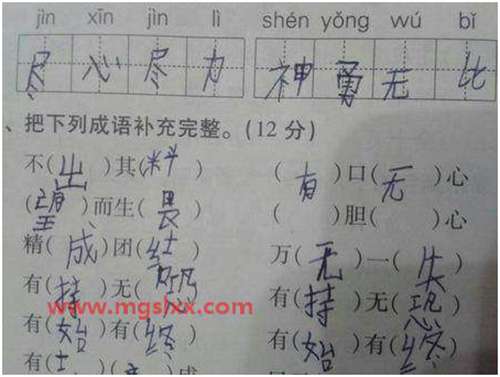 jìn xīn jìn lì shén yǒng wú bǐ
尽心尽力 神勇无比
、把下列成语补充完整。(12 分)
不(出)其(料) (有)口(无)心
(望)而生(畏) ( )胆( )心
精(成)团(结) 万(无)一(失)
有(持)无(恐) 有(持)无(恐)
www.mgslxx.com
有(始)有(终) 有(始)有(终)
有(